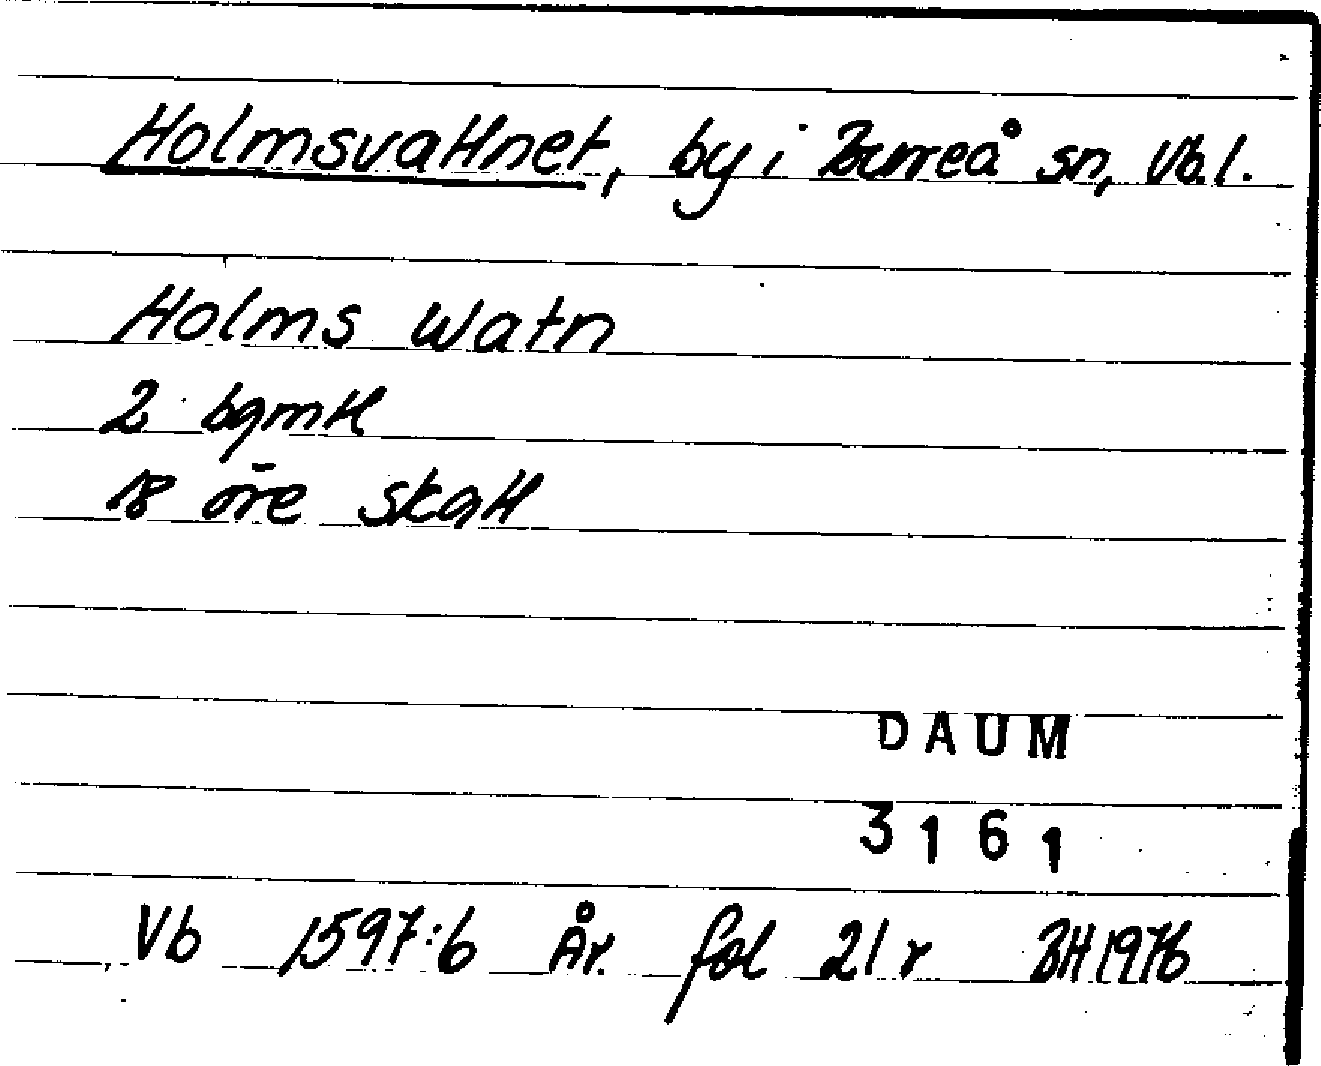 Holmsvattnet, by i Bureå sn, Vb. l.
Holms Watn
2 bgmtl
18 öre skatt
DAUM
3161
Vb 1597:6 År. fol 21 r BH 1976